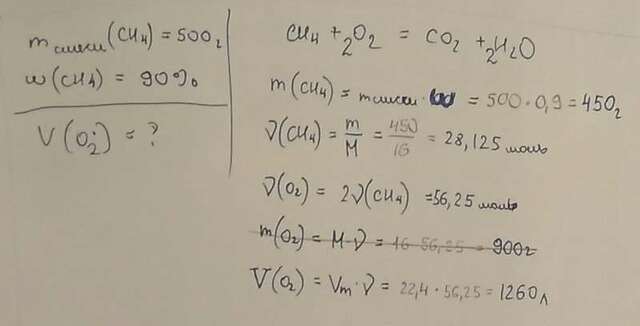 m смеси (CH4) = 500г
w(CH4) = 90%
V(O2) = ?
CH4 + 2O2 = CO2 + 2H2O
m(CH4) = m смеси · ω = 500 · 0,9 = 450г
ν(CH4) = m/M = 450/16 = 28,125 моль
ν(O2) = 2ν(CH4) = 56,25 моль
m(O2) = M · ν = 16 · 56,25 = 900г
V(O2) = Vm · ν = 22,4 · 56,25 = 1260л